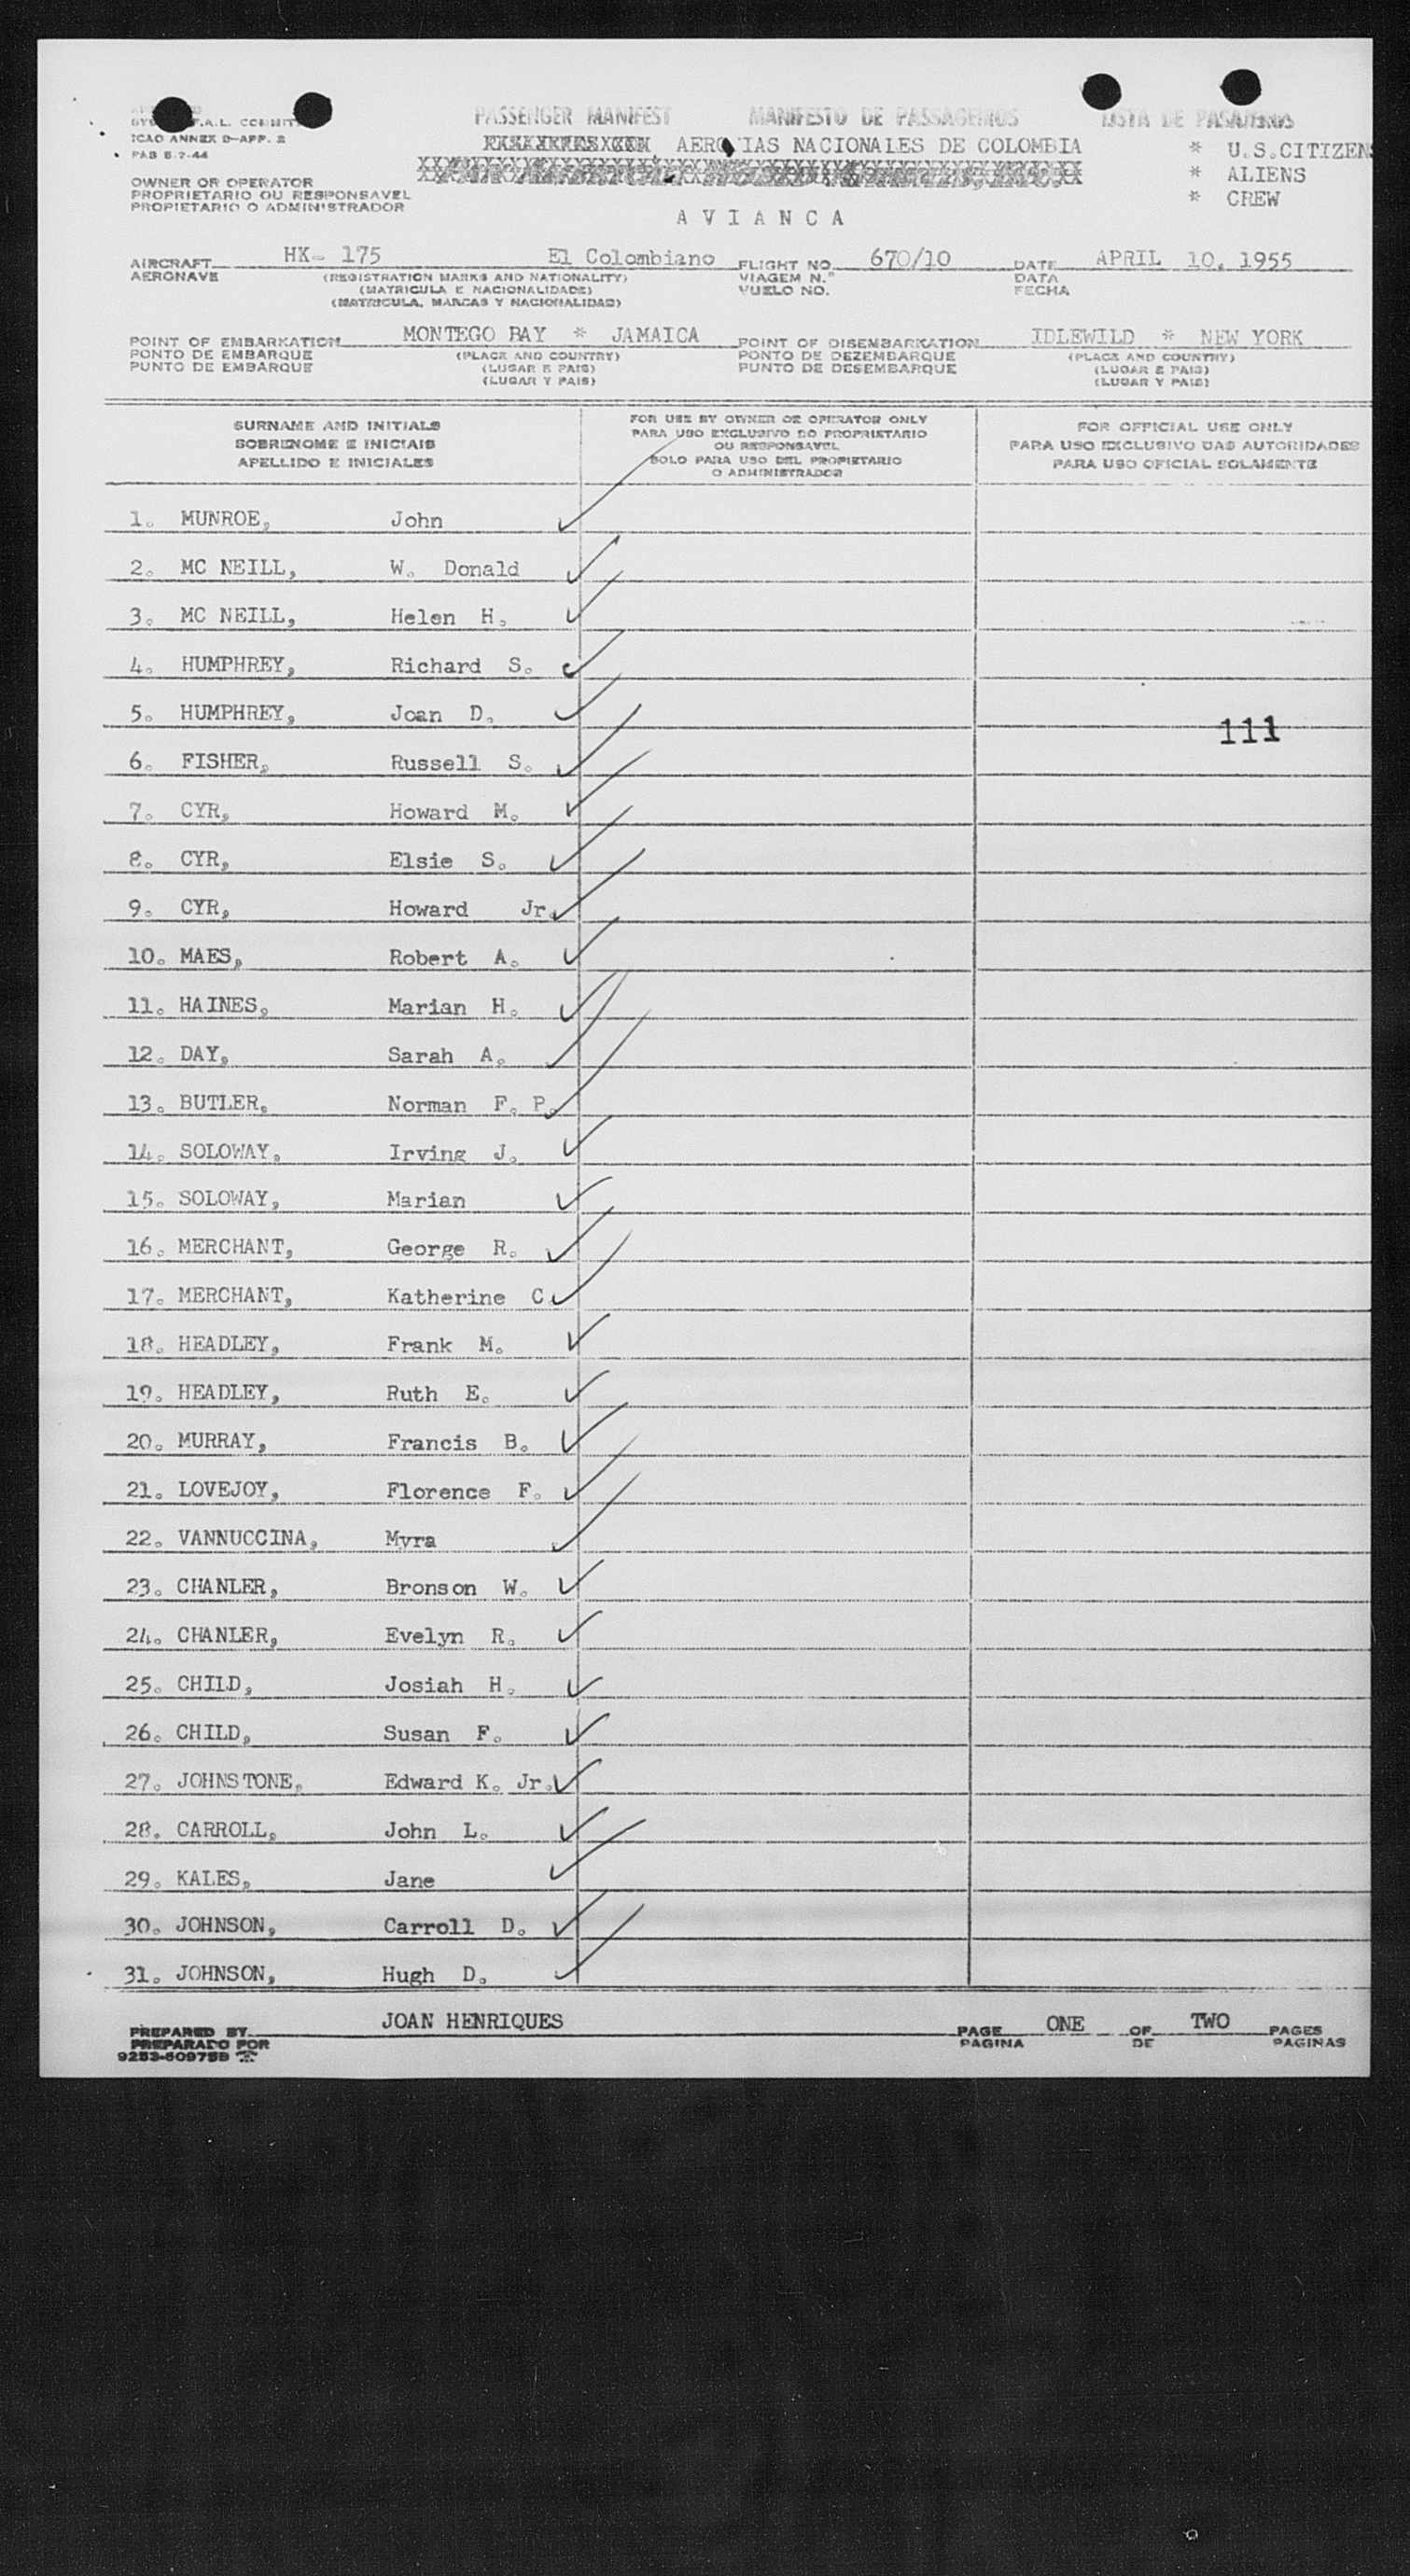 PASSENGER MANIFEST MANIFESTO DE PASSAGEIROS LISTA DE PASAJEROS
F.A.L.
ICAO ANNEX 9-APP. 2
PAB 6-7-44
AEROVIAS NACIONALES DE COLOMBIA
* U.S.CITIZENS
* ALIENS
* CREW
OWNER OR OPERATOR
PROPRIETARIO OU RESPONSAVEL
PROPIETARIO O ADMINISTRADOR
A V I A N C A
AIRCRAFT HK- 175 El Colombiano FLIGHT NO. 670/10 DATE APRIL 10, 1955
AERONAVE (REGISTRATION MARKS AND NATIONALITY) VIAGEM N.º DATA
(MATRICULA E NACIONALIDADE) VUELO NO. FECHA
(MATRICULA, MARCAS Y NACIONALIDAD)
POINT OF EMBARKATION MONTEGO BAY * JAMAICA POINT OF DISEMBARKATION IDLEWILD * NEW YORK
PONTO DE EMBARQUE (PLACE AND COUNTRY) PONTO DE DEZEMBARQUE (PLACE AND COUNTRY)
PUNTO DE EMBARQUE (LUGAR E PAIS) PUNTO DE DESEMBARQUE (LUGAR E PAIS)
(LUGAR Y PAIS) (LUGAR Y PAIS)
SURNAME AND INITIALS
SOBRENOME E INICIAIS
APELLIDO E INICIALES
FOR USE BY OWNER OR OPERATOR ONLY
PARA USO EXCLUSIVO DO PROPRIETARIO
OU RESPONSAVEL
SOLO PARA USO DEL PROPIETARIO
O ADMINISTRADOR
FOR OFFICIAL USE ONLY
PARA USO EXCLUSIVO DAS AUTORIDADES
PARA USO OFICIAL SOLAMENTE
1. MUNROE, John
2. MC NEILL, W. Donald
3. MC NEILL, Helen H.
4. HUMPHREY, Richard S.
5. HUMPHREY, Joan D.
111
6. FISHER, Russell S.
7. CYR, Howard M.
8. CYR, Elsie S.
9. CYR, Howard Jr.
10. MAES, Robert A.
11. HAINES, Marian H.
12. DAY, Sarah A.
13. BUTLER, Norman F. P.
14. SOLOWAY, Irving J.
15. SOLOWAY, Marian
16. MERCHANT, George R.
17. MERCHANT, Katherine C.
18. HEADLEY, Frank M.
19. HEADLEY, Ruth E.
20. MURRAY, Francis B.
21. LOVEJOY, Florence F.
22. VANNUCCINA, Myra
23. CHANLER, Bronson W.
24. CHANLER, Evelyn R.
25. CHILD, Josiah H.
26. CHILD, Susan F.
27. JOHNSTONE, Edward K. Jr.
28. CARROLL, John L.
29. KALES, Jane
30. JOHNSON, Carroll D.
31. JOHNSON, Hugh D.
PREPARED BY JOAN HENRIQUES PAGE ONE OF TWO PAGES
PREPARADO POR PAGINA DE PAGINAS
9253-609758